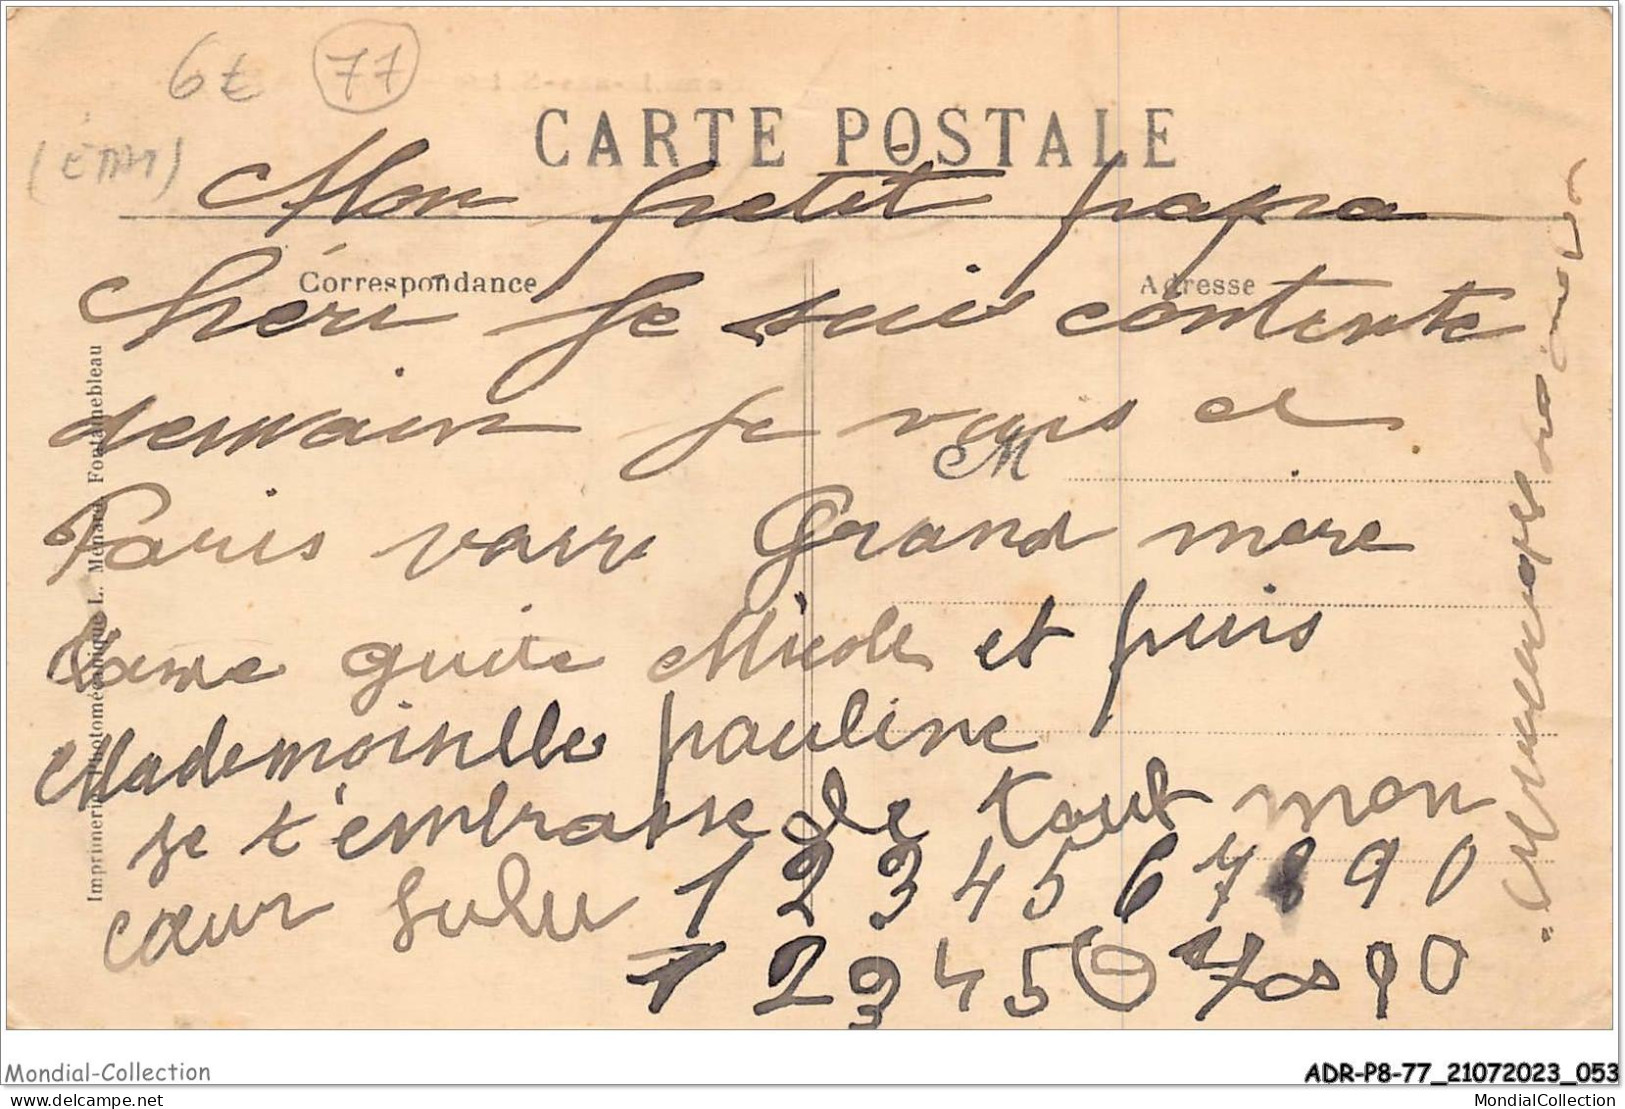 6€ 77
(ÉTAT)
CARTE POSTALE
Mon petit papa
Correspondance
Adresse
chéri Je suis contente
demain Je vais a
M
Paris voir Grand mere
guite Nicole et puis
Mademoiselle pauline
je t'embrasse de tout mon
cœur Lulu 1 2 3 4 5 6 7 8 9 0
1 2 3 4 5 6 7 8 9 0
Imprimerie Photomécanique L. Ménard, Fontainebleau
Mondial-Collection
ADR-P8-77_21072023_053
delcampe.net
MondialCollection